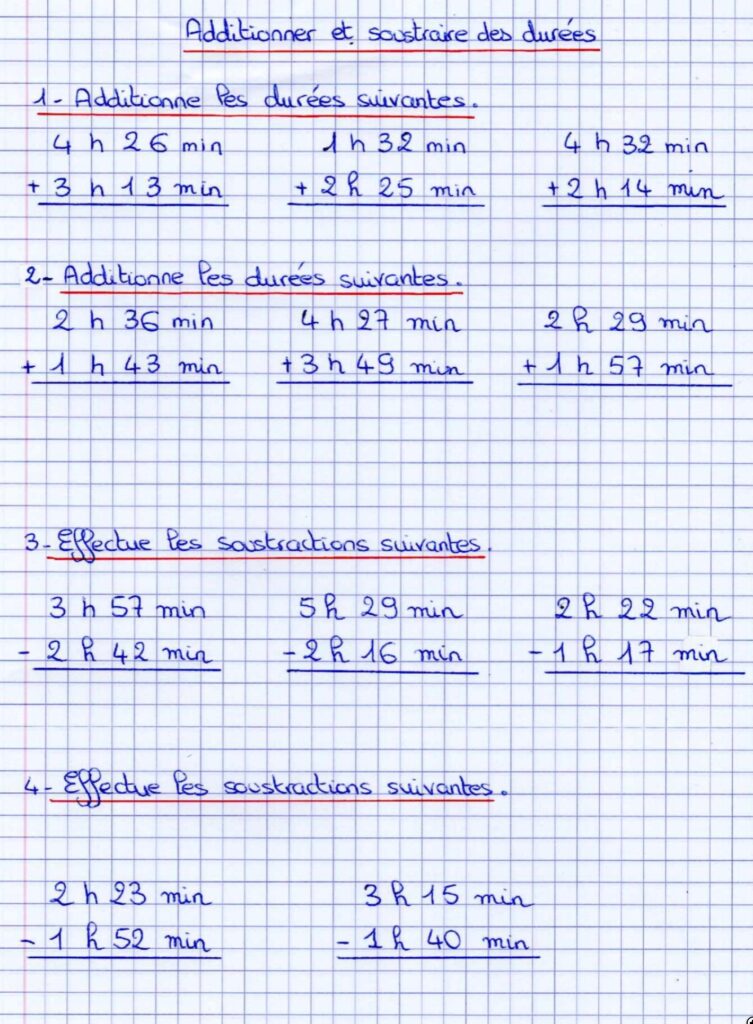 Additionner et soustraire des durées
1- Additionne les durées suivantes.
4 h 26 min 1 h 32 min 4 h 32 min
+ 3 h 13 min + 2 h 25 min + 2 h 14 min
2- Additionne les durées suivantes.
2 h 36 min 4 h 27 min 2 h 29 min
+ 1 h 43 min + 3 h 49 min + 1 h 57 min
3- Effectue les soustractions suivantes.
3 h 57 min 5 h 29 min 2 h 22 min
- 2 h 42 min - 2 h 16 min - 1 h 17 min
4- Effectue les soustractions suivantes.
2 h 23 min 3 h 15 min
- 1 h 52 min - 1 h 40 min